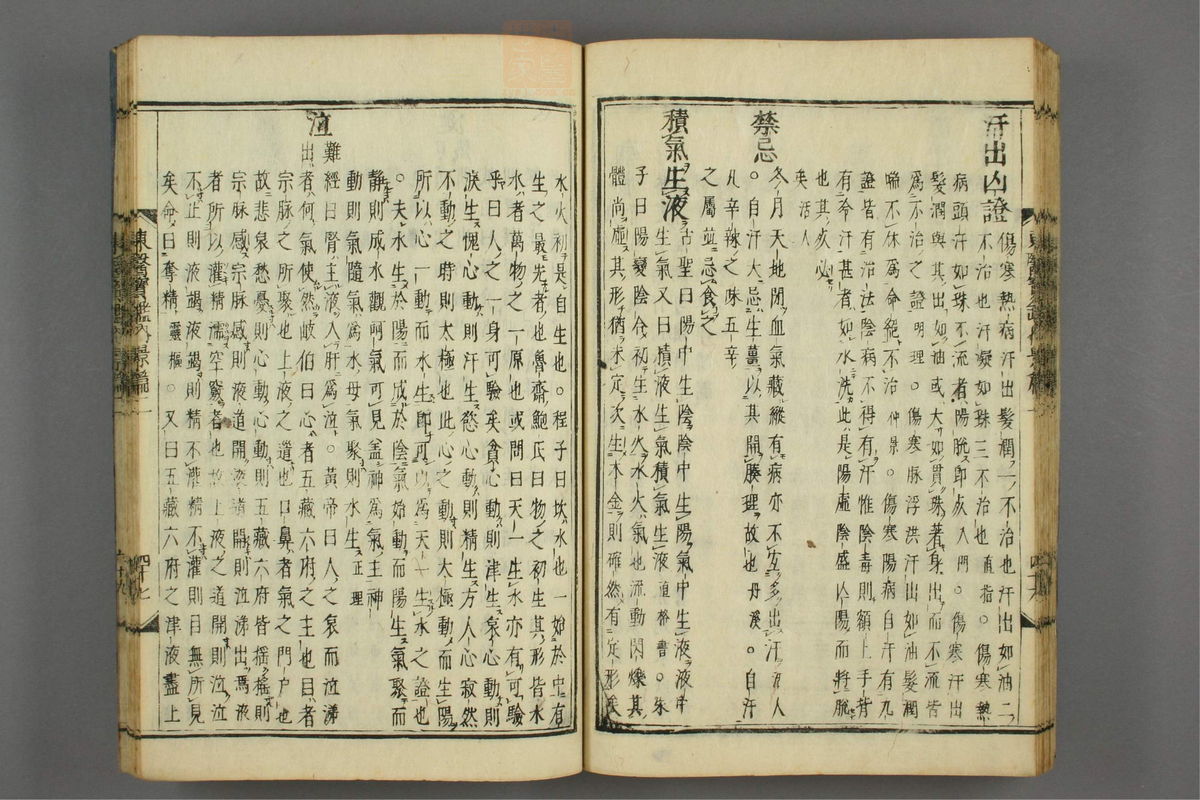 汗出凶證 傷寒熱病汗出髮潤一不治也汗出如油二
不治也汗凝如珠三不治也直指○傷寒熱
病頭汗如珠不流者陽脫即死入門○傷寒汗出
髮潤與其出如油或大如貫珠著身出而不流皆
爲不治之證明理○傷寒脉浮洪汗出如油髮潤
喘不休爲命絕不治仲景○傷寒陽病自汗有九
證皆有治法陰病不得有汗惟陰毒則額上手背
有冷汗甚者如水洗此是陽虛陰盛以陽而將脫
也其死必
矣活人
禁忌 冬月天地閉血氣藏縱有病亦不宜多出汗活人
○自汗大忌生薑以其開腠理故也丹溪○自汗
凡辛辣之味五辛
之屬並忌食之
積氣生液 古聖曰陽中生陰陰中生陽氣中生液液中
生氣又曰積液生氣積氣生液道書○朱
子曰陽變陰合初生水火水火氣也流動閃爍其
體尚虛其形猶未定次生木金則確然有定形矣
水火初是自生也○程子曰坎水也一始於中有
生之最先者也魯齋鮑氏曰物之初生其形皆水
水者萬物之一原也或問曰天一生水亦有可驗
乎曰人之一身可驗矣貪心動則津生哀心動則
淚生愧心動則汗生慾心動則精生方人心寂然
不動之時則太極也此心之動則太極動而生陽
所以心一動而水生即可以爲天一生水之證也
○夫水生於陽而成於陰氣始動而陽生氣聚而
靜則成水觀呵氣可見盖神爲氣主神
動則氣隨氣爲水母氣聚則水生正理
泣 難經曰腎主液入肝爲泣○黃帝曰人之哀而泣涕
出者何氣使然岐伯曰心者五藏六府之主也目者
宗脉之所聚也上液之道也口鼻者氣之門户也
故悲哀愁憂則心動心動則五藏六府皆搖搖則
宗脉感宗脉感則液道開液道開則泣涕出焉液
者所以灌精濡空竅者也故上液之道開則泣泣
不止則液竭液竭則精不灌精不灌則目無所見
矣命曰奪精靈樞○又曰五藏六府之津液盡上
東醫寶鑑內景篇 一
四十七